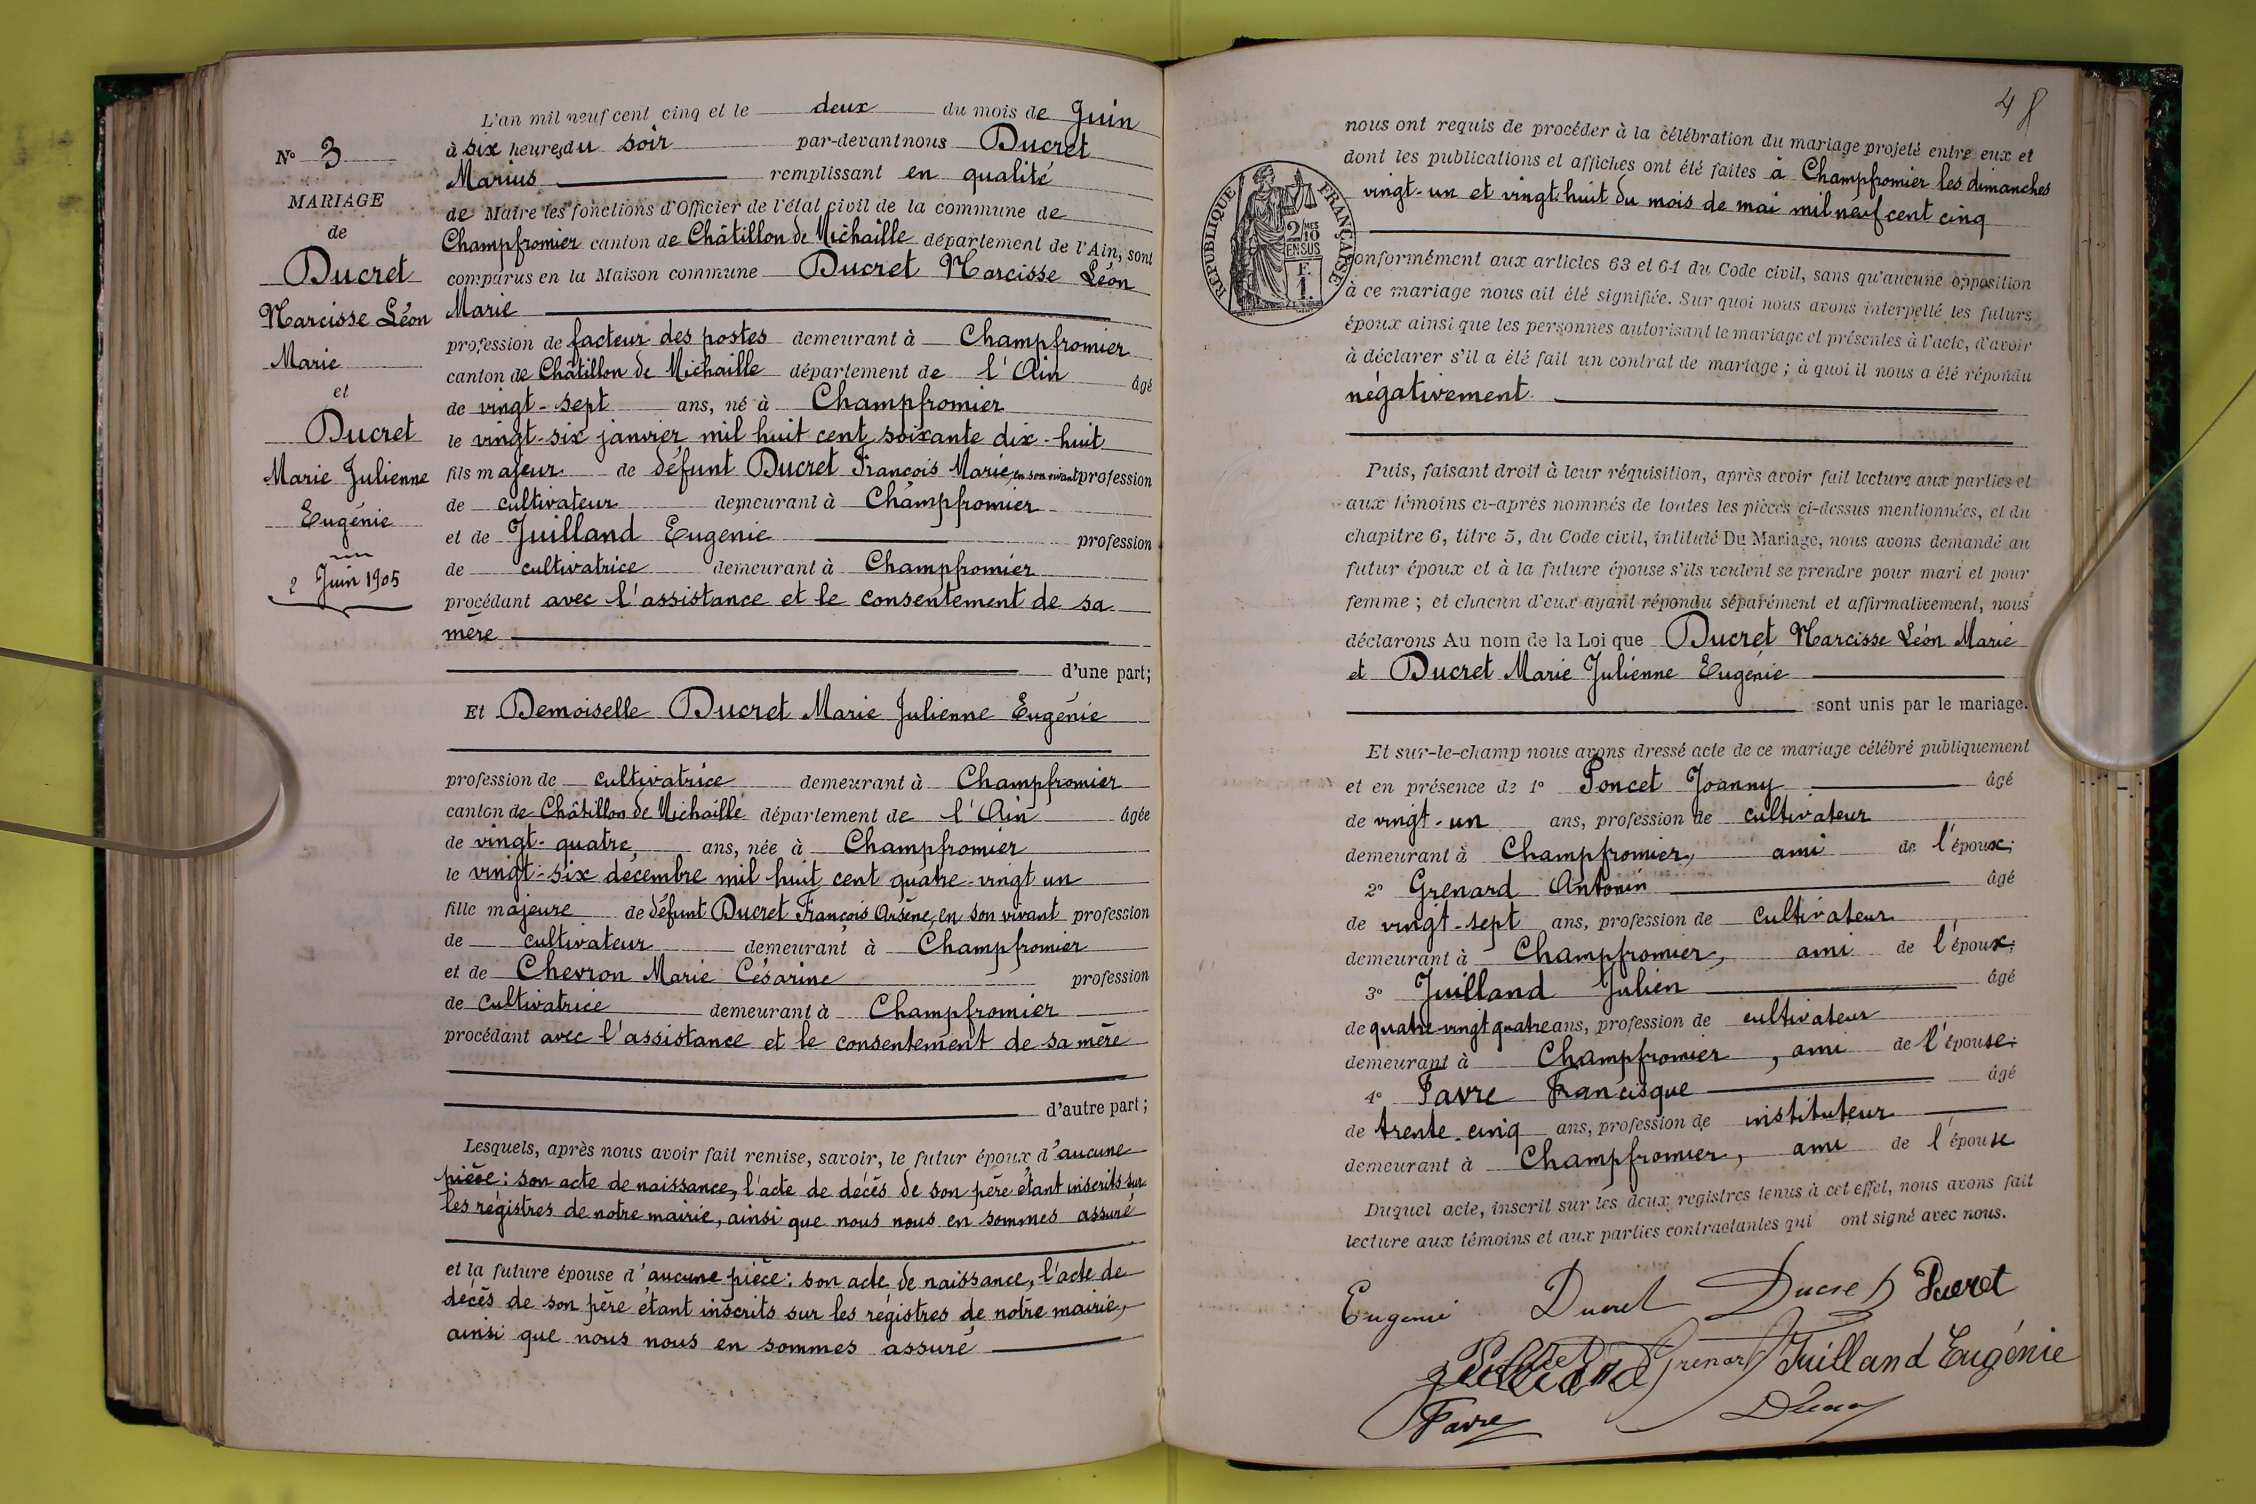 N° 3
MARIAGE
de
Ducret
Narcisse Léon
Marie
et
Ducret
Marie Julienne
Eugénie
2 Juin 1905
L'an mil neuf cent cinq et le deux du mois de Juin
à six heures du soir par-devant nous Ducret
Marius remplissant en qualité
de Maire les fonctions d'Officier de l'état civil de la commune de
Champfromier canton de Châtillon de Michaille département de l'Ain, sont
comparus en la Maison commune Ducret Narcisse Léon
Marie
profession de facteur des postes demeurant à Champfromier
canton de Châtillon de Michaille département de l'Ain âgé
de vingt-sept ans, né à Champfromier
le vingt-six janvier mil huit cent soixante dix-huit
fils majeur de défunt Ducret François Marie, en son vivant profession
de cultivateur demeurant à Champfromier
et de Juilland Eugenie profession
de cultivatrice demeurant à Champfromier
procédant avec l'assistance et le consentement de sa
mère
d'une part;
Et Demoiselle Ducret Marie Julienne Eugénie
profession de cultivatrice demeurant à Champfromier
canton de Châtillon de Michaille département de l'Ain âgée
de vingt-quatre ans, née à Champfromier
le vingt-six décembre mil huit cent quatre-vingt un
fille majeure de défunt Ducret François Arsène, en son vivant profession
de cultivateur demeurant à Champfromier
et de Chevron Marie Césarine profession
de cultivatrice demeurant à Champfromier
procédant avec l'assistance et le consentement de sa mère
d'autre part;
Lesquels, après nous avoir fait remise, savoir, le futur époux d'aucune
pièce: son acte de naissance, l'acte de décès de son père étant inscrits sur
les régistres de notre mairie, ainsi que nous nous en sommes assuré
et la future épouse d'aucune pièce: son acte de naissance, l'acte de
décès de son père étant inscrits sur les régistres de notre mairie,
ainsi que nous nous en sommes assuré
48
RÉPUBLIQUE FRANÇAISE
2/10 MES
EN SUS
F.
1.
nous ont requis de procéder à la célébration du mariage projeté entre eux et
dont les publications et affiches ont été faites à Champfromier les dimanches
vingt-un et vingt-huit du mois de mai mil neuf cent cinq
conformément aux articles 63 et 64 du Code civil, sans qu'aucune opposition
à ce mariage nous ait été signifiée. Sur quoi nous avons interpellé les futurs
époux ainsi que les personnes autorisant le mariage et présentes à l'acte, d'avoir
à déclarer s'il a été fait un contrat de mariage; à quoi il nous a été répondu
négativement
Puis, faisant droit à leur réquisition, après avoir fait lecture aux parties et
aux témoins ci-après nommés de toutes les pièces ci-dessus mentionnées, et du
chapitre 6, titre 5, du Code civil, intitulé Du Mariage, nous avons demandé au
futur époux et à la future épouse s'ils veulent se prendre pour mari et pour
femme; et chacun d'eux ayant répondu séparément et affirmativement, nous
déclarons Au nom de la Loi que Ducret Narcisse Léon Marie
et Ducret Marie Julienne Eugénie
sont unis par le mariage.
Et sur-le-champ nous avons dressé acte de ce mariage célébré publiquement
et en présence de 1° Poncet Joanny âgé
de vingt-un ans, profession de cultivateur
demeurant à Champfromier, ami de l'époux;
2° Grenard Antonin âgé
de vingt-sept ans, profession de cultivateur
demeurant à Champfromier, ami de l'époux;
3° Juilland Julien âgé
de quatre-vingt quatre ans, profession de cultivateur
demeurant à Champfromier, ami de l'épouse;
4° Favre Francisque âgé
de trente-cinq ans, profession de instituteur
demeurant à Champfromier, ami de l'épouse
Duquel acte, inscrit sur les deux registres tenus à cet effet, nous avons fait
lecture aux témoins et aux parties contractantes qui ont signé avec nous.
Eugenie Ducret Ducret Ducret
Grenard Juilland Eugénie
Favre